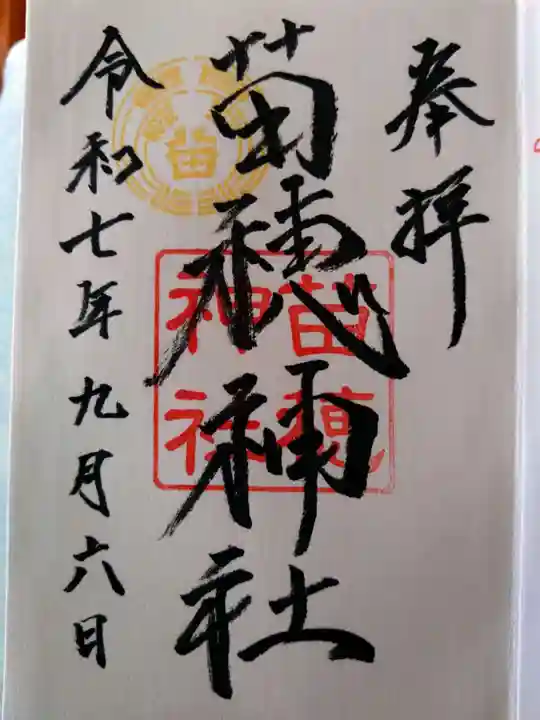 奉拝
苗穂神社
令和七年九月六日
苗穂
神社
苗